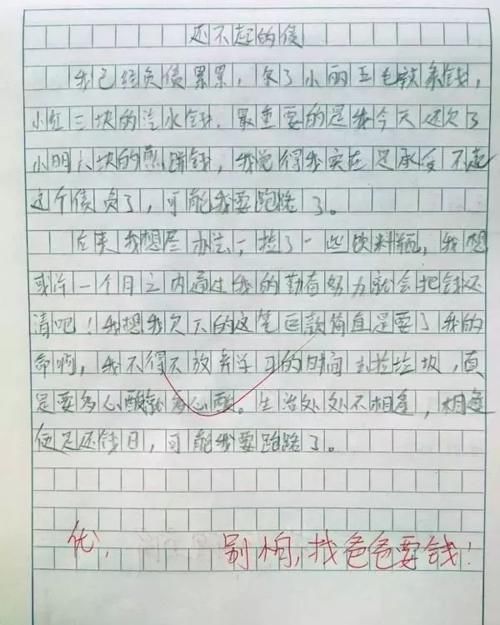 还不起的债
我已经负债累累，欠了小丽五毛辣条钱，
小红三块的汽水钱，最重要的是我今天还欠了
小明八块的煎饼钱，我觉得我实在是承受不起
这个债负了，可能我要跑路了。
我想尽办法，捡了一些饮料瓶，我想
或许一个月之内通过我的勤奋努力就会把钱还
清吧！我想我欠下的这笔巨款简直是要了我的
命啊，我不得不放弃学习的时间去捡垃圾，真
是要多心酸就多心酸。生活处处不相逢，相逢
便是还钱日，可能我要跑路了。
优，别怕，找爸爸要钱！